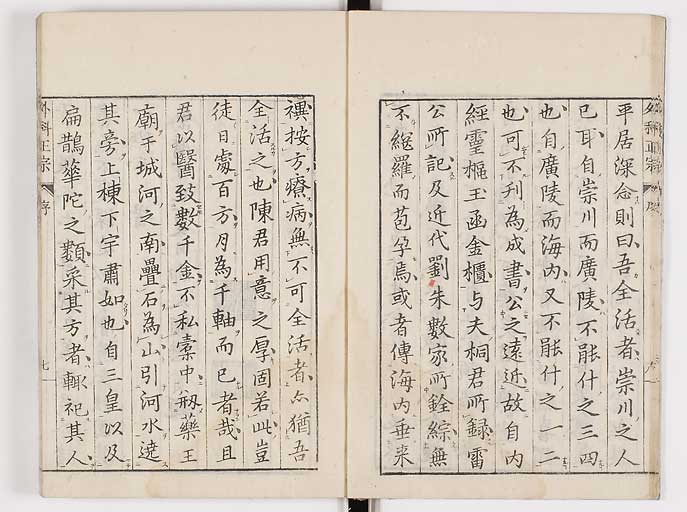 平居深念則曰吾全活者崇川之人
已耳自崇川而廣陵不能什之三四
也自廣陵而海內又不能什之一二
也可不刋為成書公之遠近故自內
經靈樞玉函金櫃与夫桐君所録雷
公所記及近代劉朱數家所銓綜無
不綴羅而苞孕焉或者傳海內垂来
禩按方療病無不可全活者亦猶吾
全活之也陳君用意之厚固若此豈
徒日處百方月為千軸而已者哉且
君以醫致數千金不私橐中剏藥王
廟于城河之南疊石為山引河水遶
其旁上棟下宇肅如也自三皇以及
扁鵲華陀之類采其方者輙祀其人
外科正宗
序
七